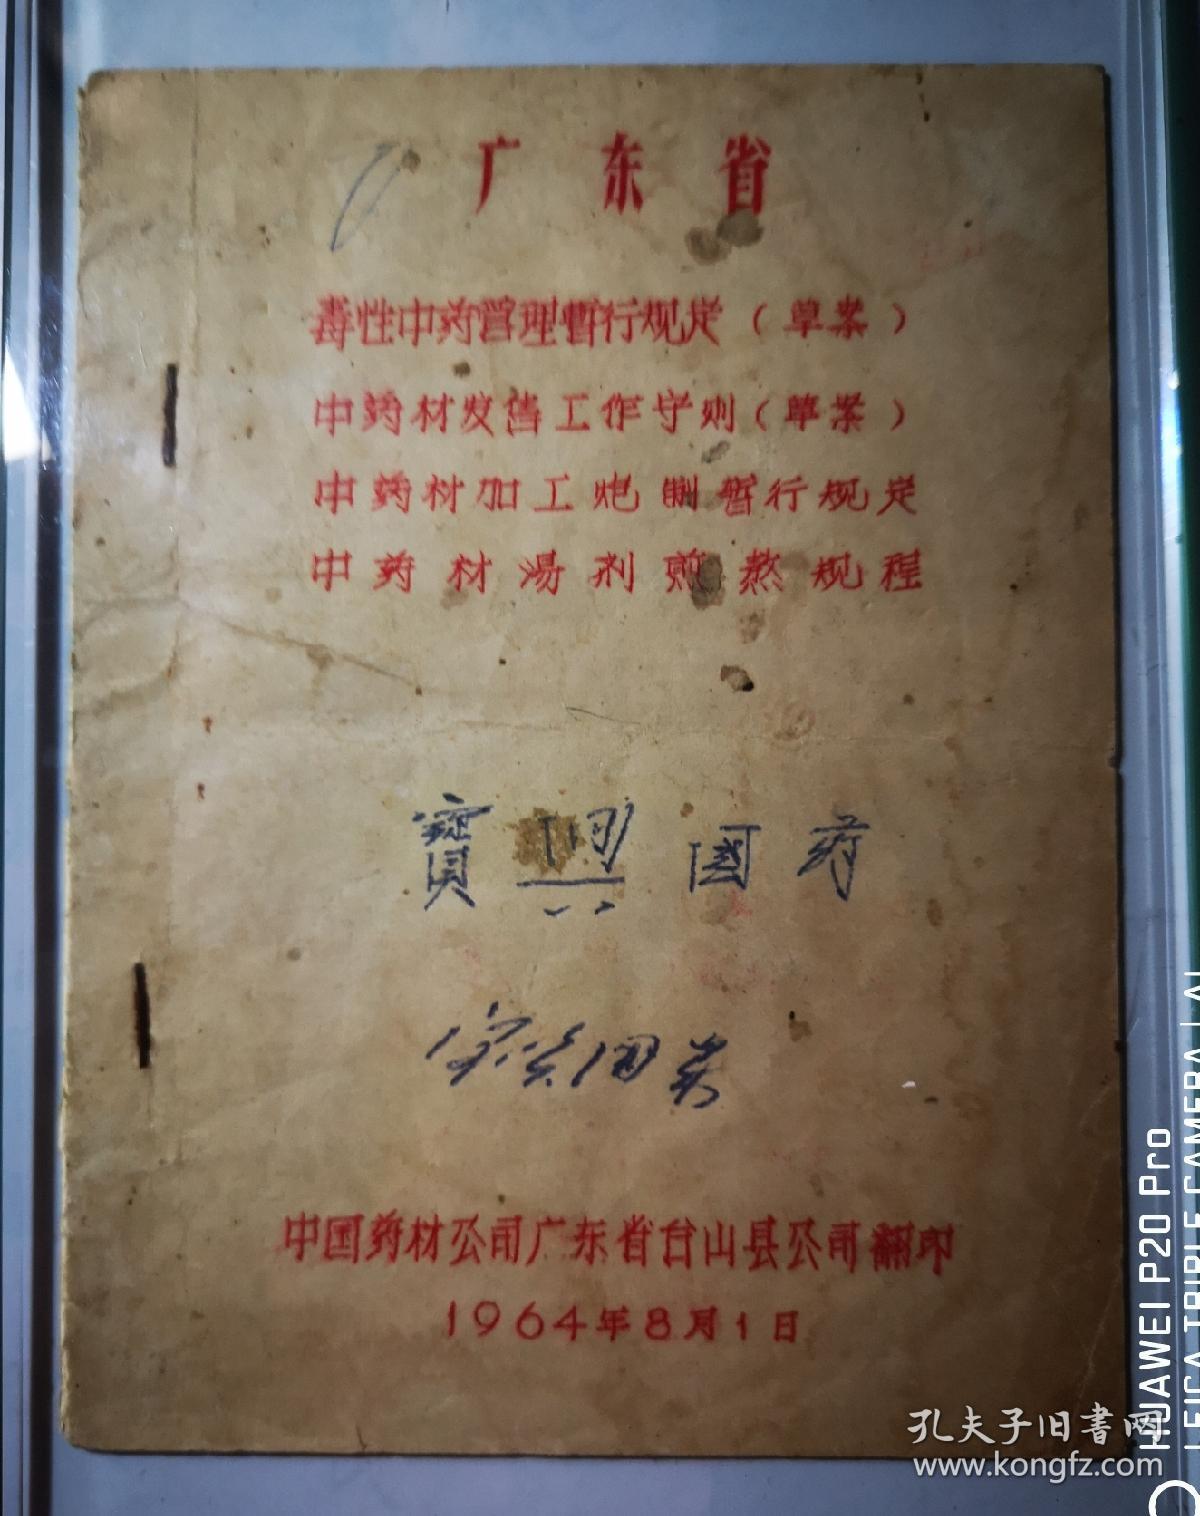 广东省
毒性中药管理暂行规定（草案）
中药材发售工作守则（草案）
中药材加工炮制暂行规定
中药材湯剂煎熬规程
寶兴國药
中国药材公司广东省台山县公司翻印
1964年8月1日
孔夫子旧書网
www.kongfz.com
HUAWEI P20 Pro
LEICA TRIPLE CAMERA | AI